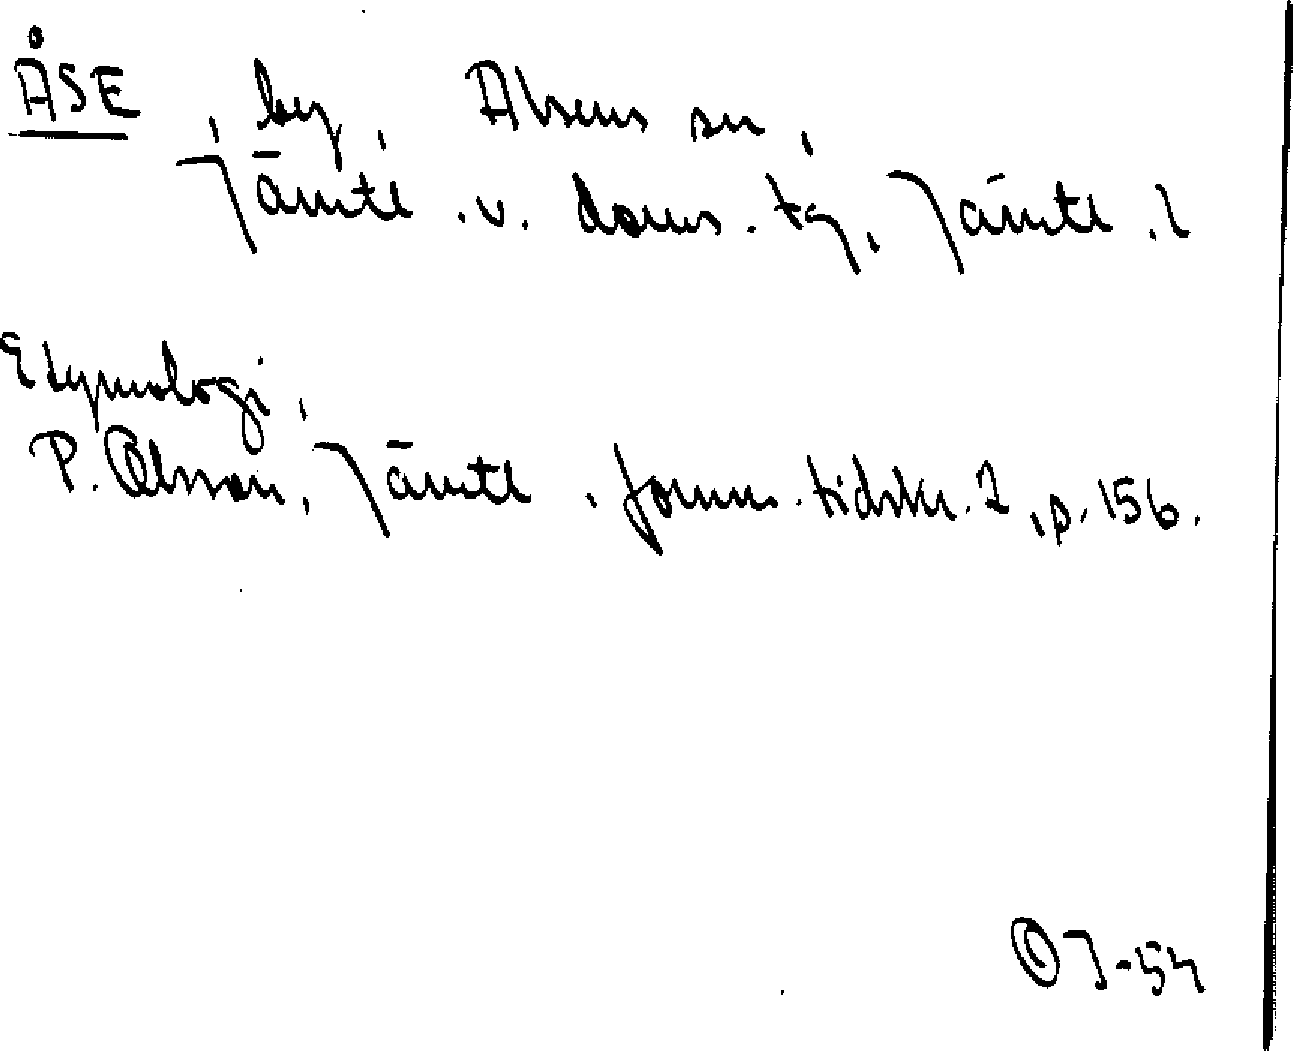 ÅSE, by, Alsens sn,
Jämtl. v. doms. tg, Jämtl. l
Etymologi,
P. Olsson, Jämtl. fornm. tidskr. 2, p. 156.
OJ-54